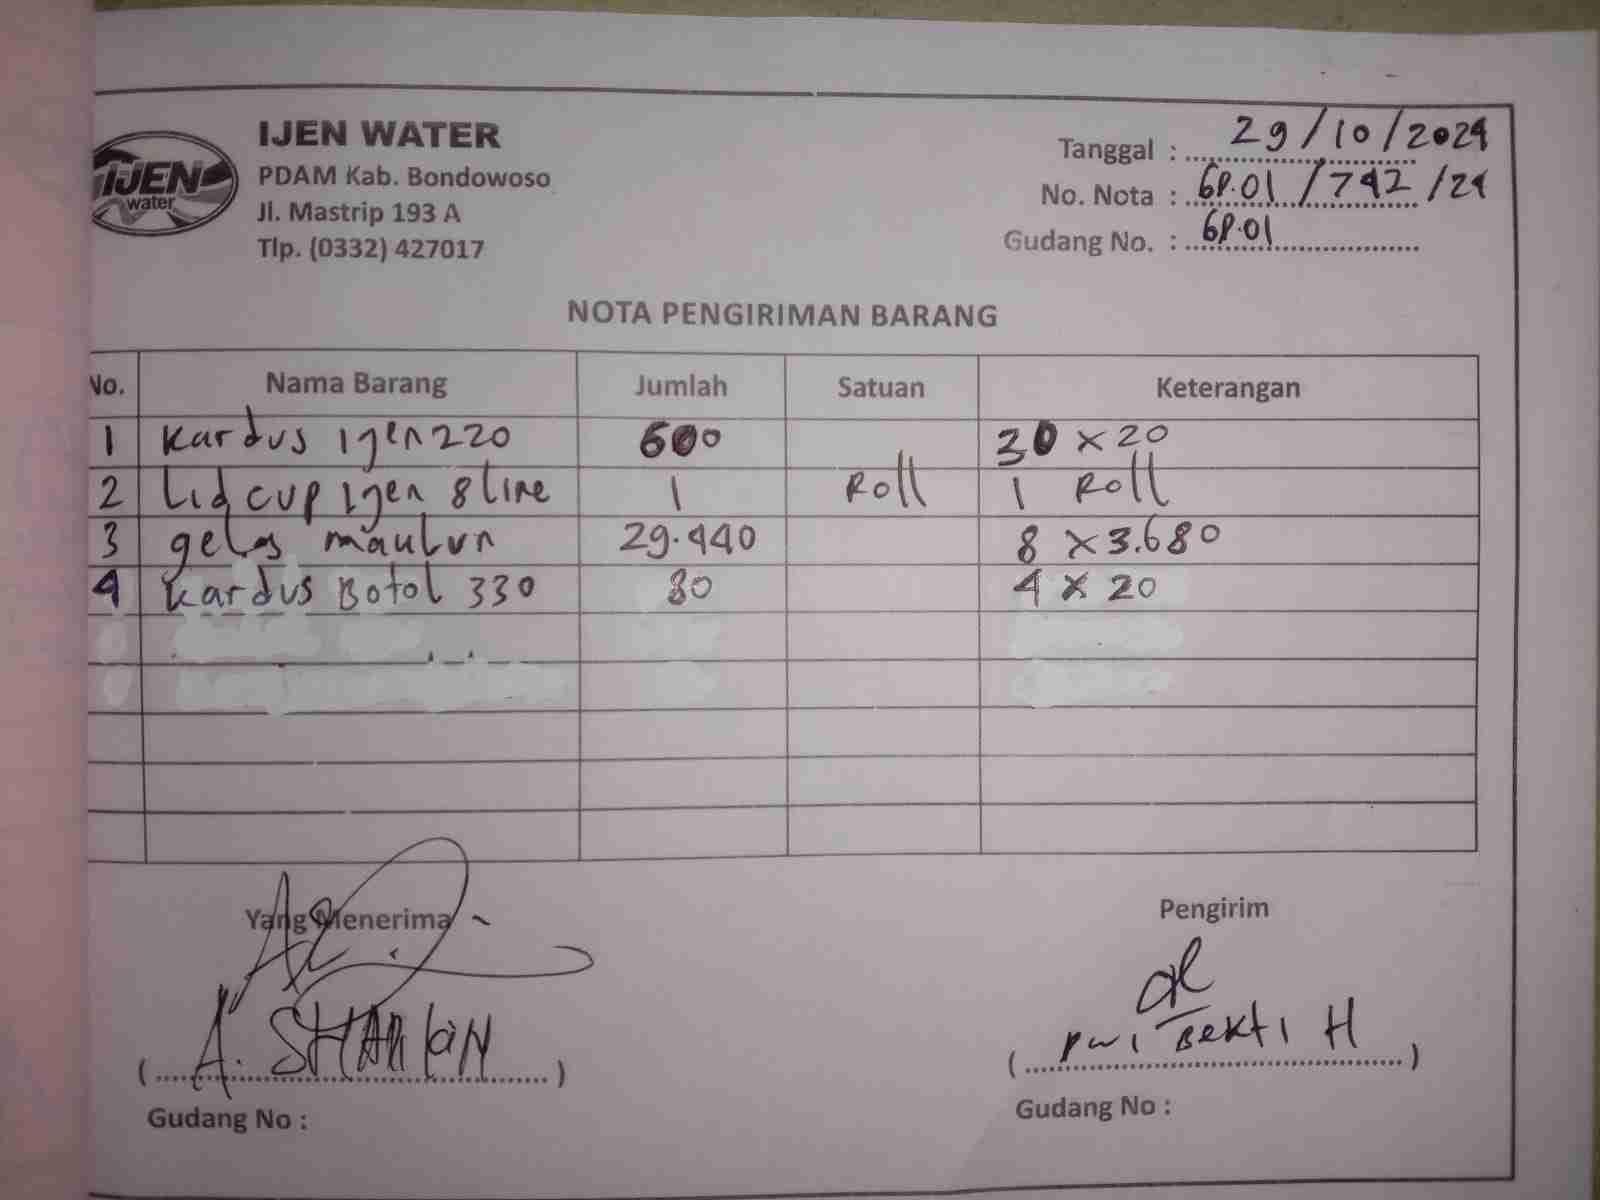 IJEN WATER
PDAM Kab. Bondowoso
Jl. Mastrip 193 A
Tlp. (0332) 427017
IJEN
water
Tanggal : 29/10/2024
No. Nota : GP.01/742/24
Gudang No. : GP.01
NOTA PENGIRIMAN BARANG
No. Nama Barang Jumlah Satuan Keterangan
1 Kardus Ijen 220 600 30 x 20
2 Lid cup Ijen 8 line 1 Roll 1 Roll
3 gelas maulun 29.440 8 x 3.680
4 Kardus Botol 330 80 4 x 20
Yang Menerima Pengirim
( A. ) ( Dwi Bekti H )
Gudang No : Gudang No :